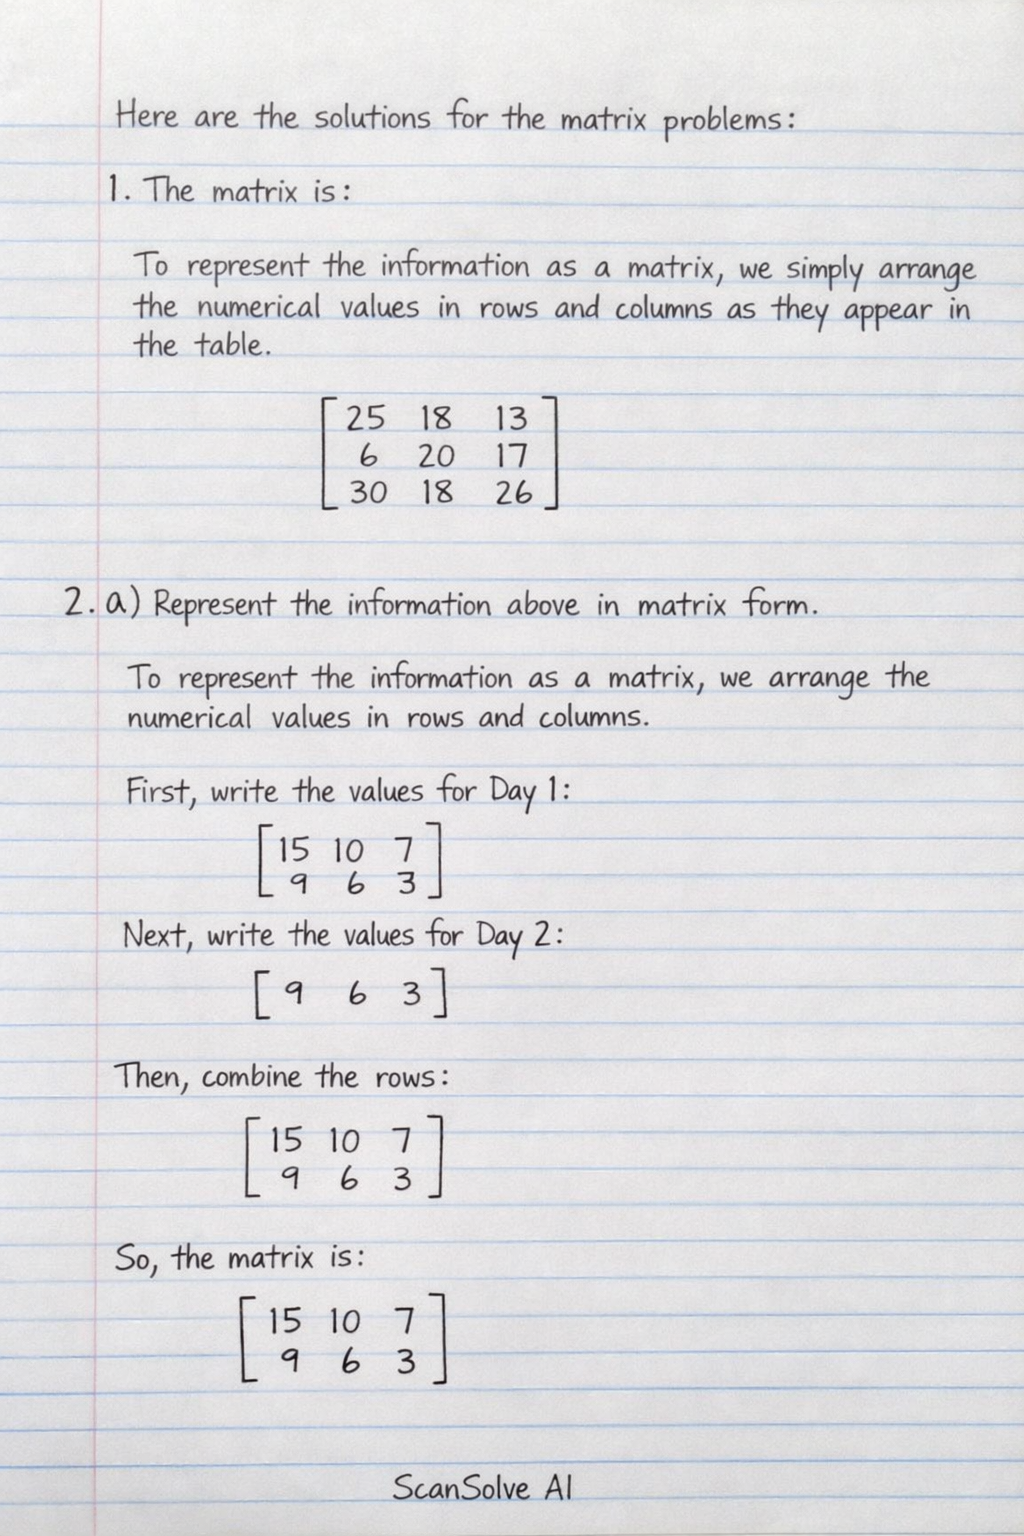 Here are the solutions for the matrix problems:
1. The matrix is:
To represent the information as a matrix, we simply arrange
the numerical values in rows and columns as they appear in
the table.
25 18 13
6 20 17
30 18 26
2. a) Represent the information above in matrix form.
To represent the information as a matrix, we arrange the
numerical values in rows and columns.
First, write the values for Day 1:
15 10 7
9 6 3
Next, write the values for Day 2:
[ 9 6 3 ]
Then, combine the rows:
15 10 7
9 6 3
So, the matrix is:
15 10 7
9 6 3
ScanSolve AI